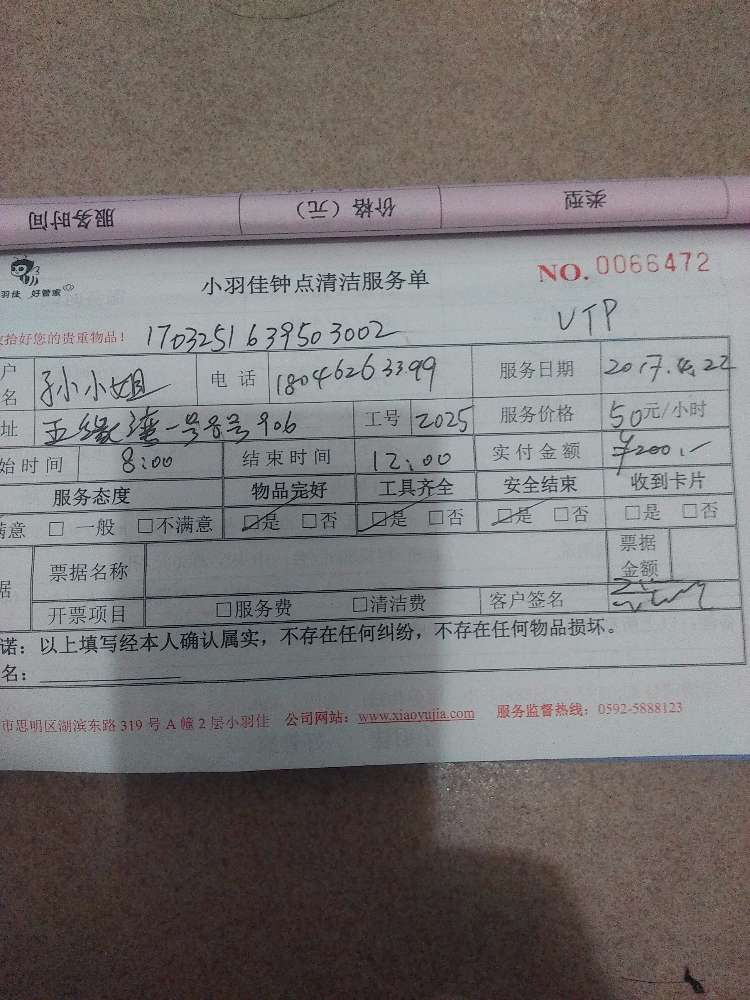 服务时间 价格（元） 类型
羽佳 好管家
小羽佳钟点清洁服务单
NO. 0066472
拾好您的贵重物品！ 1703251639503002
VTP
户名 孙小姐 电话 18046263399 服务日期 2017.4.22
址 五缘湾一号8号906 工号 2025 服务价格 50元/小时
始时间 8:00 结束时间 12:00 实付金额 ¥200.-
服务态度 物品完好 工具齐全 安全结束 收到卡片
满意 □ 一般 □不满意 □是 □否 □是 □否 □是 □否 □是 □否
据 票据名称 票据金额
开票项目 □服务费 □清洁费 客户签名
诺：以上填写经本人确认属实，不存在任何纠纷，不存在任何物品损坏。
名：
市思明区湖滨东路 319 号 A 幢 2 层小羽佳 公司网站：www.xiaoyujia.com 服务监督热线：0592-5888123